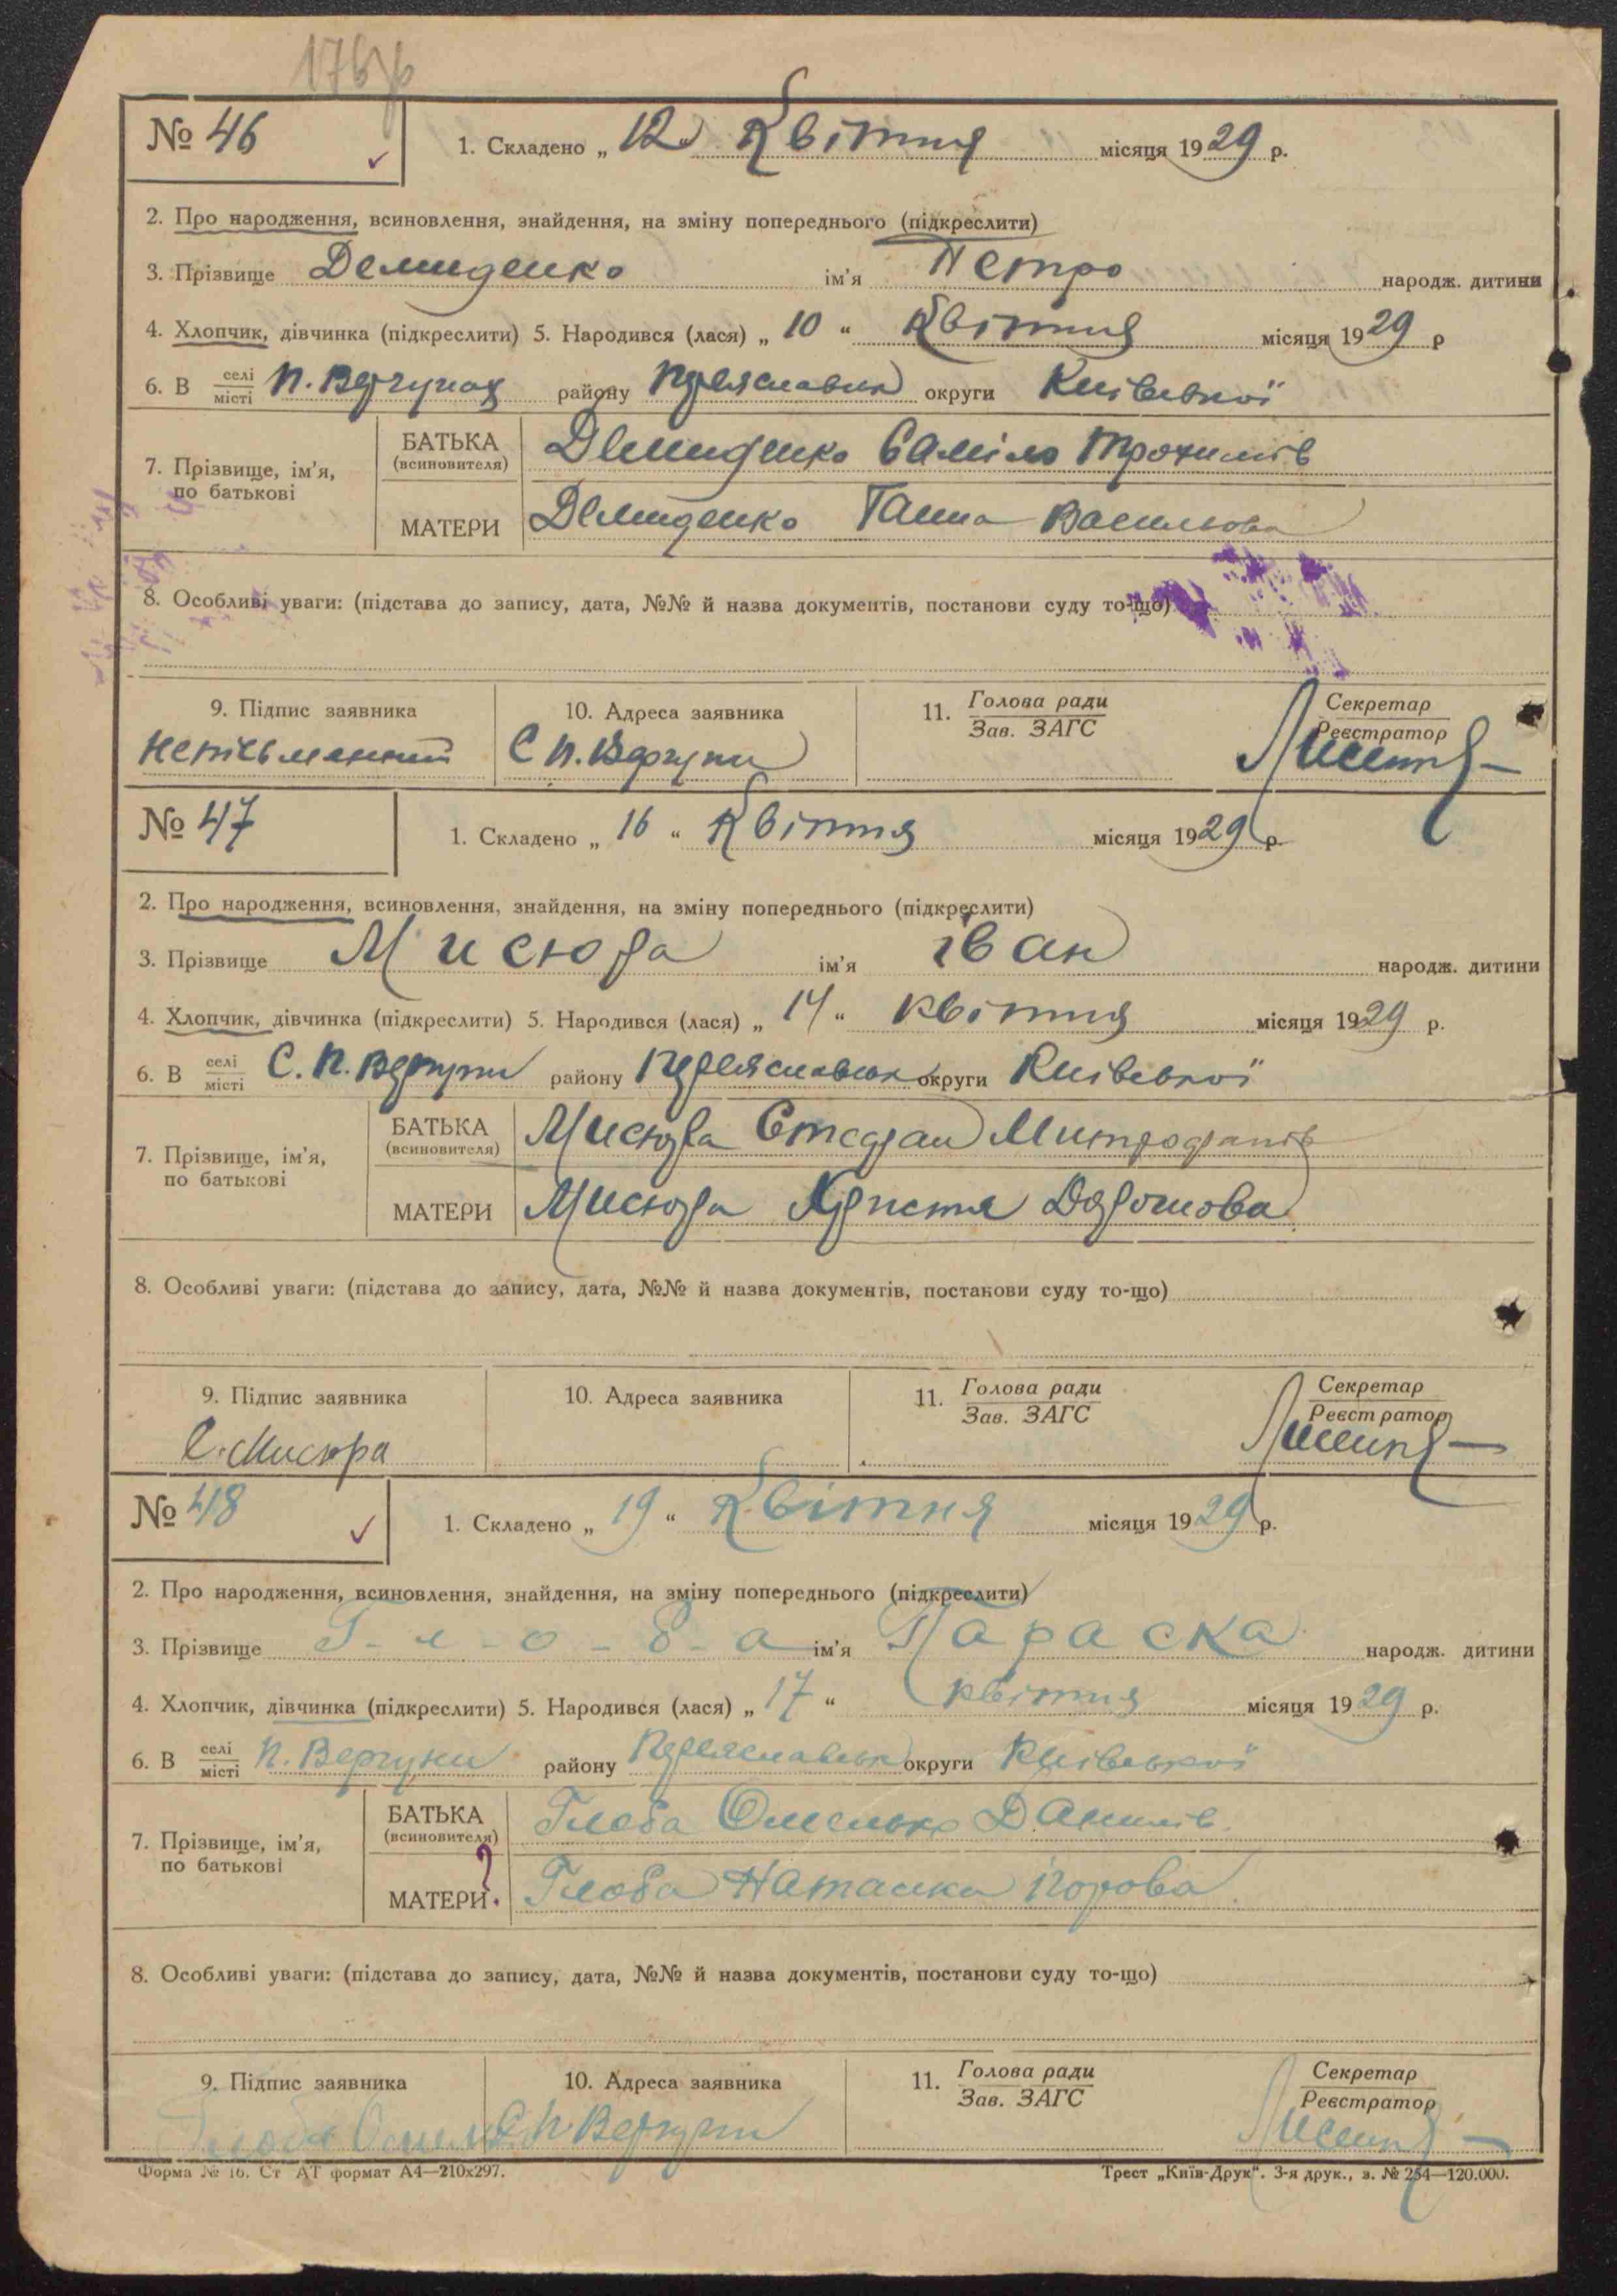 176
№ 46
1. Складено „ 12 " Квітня місяця 1929 р.
2. Про народження, всиновлення, знайдення, на зміну попереднього (підкреслити)
3. Прізвище Демиденко ім'я Петро народж. дитини
4. Хлопчик, дівчинка (підкреслити) 5. Народився (лася) „ 10 “ Квітня місяця 1929 р
6. В селі місті П. Вергунах району Переяславськ округи Київської
7. Прізвище, ім'я, по батькові
БАТЬКА (всиновителя) Демиденко Саміло Трохимів
МАТЕРИ Демиденко Ганна Васильова
8. Особливі уваги: (підстава до запису, дата, №№ й назва документів, постанови суду то-що)
9. Підпис заявника 10. Адреса заявника 11. Голова ради Зав. ЗАГС Секретар Реєстратор
Неписьменний С П. Вергуни
№ 47
1. Складено „ 16 “ Квітня місяця 1929 р.
2. Про народження, всиновлення, знайдення, на зміну попереднього (підкреслити)
3. Прізвище Мисюра ім'я Іван народж. дитини
4. Хлопчик, дівчинка (підкреслити) 5. Народився (лася) „ 14 “ квітня місяця 1929 р.
6. В селі місті С. П. Вергуни району Переяславськ округи Київської
7. Прізвище, ім'я, по батькові
БАТЬКА (всиновителя) Мисюра Стефан Митрофанів
МАТЕРИ Мисюра Христя
8. Особливі уваги: (підстава до запису, дата, №№ й назва документів, постанови суду то-що)
9. Підпис заявника 10. Адреса заявника 11. Голова ради Зав. ЗАГС Секретар Реєстратор
С. Мисюра
№ 48
1. Складено „ 19 “ Квітня місяця 1929 р.
2. Про народження, всиновлення, знайдення, на зміну попереднього (підкреслити)
3. Прізвище Г-л-о-б-а ім'я Параска народж. дитини
4. Хлопчик, дівчинка (підкреслити) 5. Народився (лася) „ 17 “ квітня місяця 1929 р.
6. В селі місті П. Вергуни району Переяславськ округи Київської
7. Прізвище, ім'я, по батькові
БАТЬКА (всиновителя) Глоба Омелько Данилів
МАТЕРИ Глоба Наталка
8. Особливі уваги: (підстава до запису, дата, №№ й назва документів, постанови суду то-що)
9. Підпис заявника 10. Адреса заявника 11. Голова ради Зав. ЗАГС Секретар Реєстратор
Глоба С П. Вергуни
Форма № 16. Ст АТ формат А4—210x297. Трест „Київ-Друк“. 3-я друк., з. № 254—120.000.